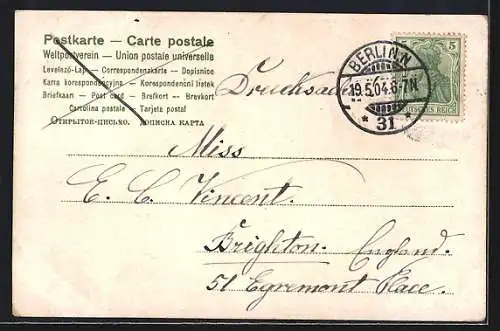 Postkarte — Carte postale
Weltpostverein — Union postale universelle
Levelező-Lap — Correspondenzkarte — Dopisnice
Karta korespondencyjna — Korespondenční lístek
Briefkaart — Post card — Brefkort — Brevkort
Cartolina postale — Tarjeta postal
Открытое-письмо. Дописна карта
Drucksache
BERLIN.N
19.5.04.6-7N.
* 31 *
5 5
DEUTSCHES REICH
Miss
E. C. Vincent.
Brighton. England.
51 Egremont Place.